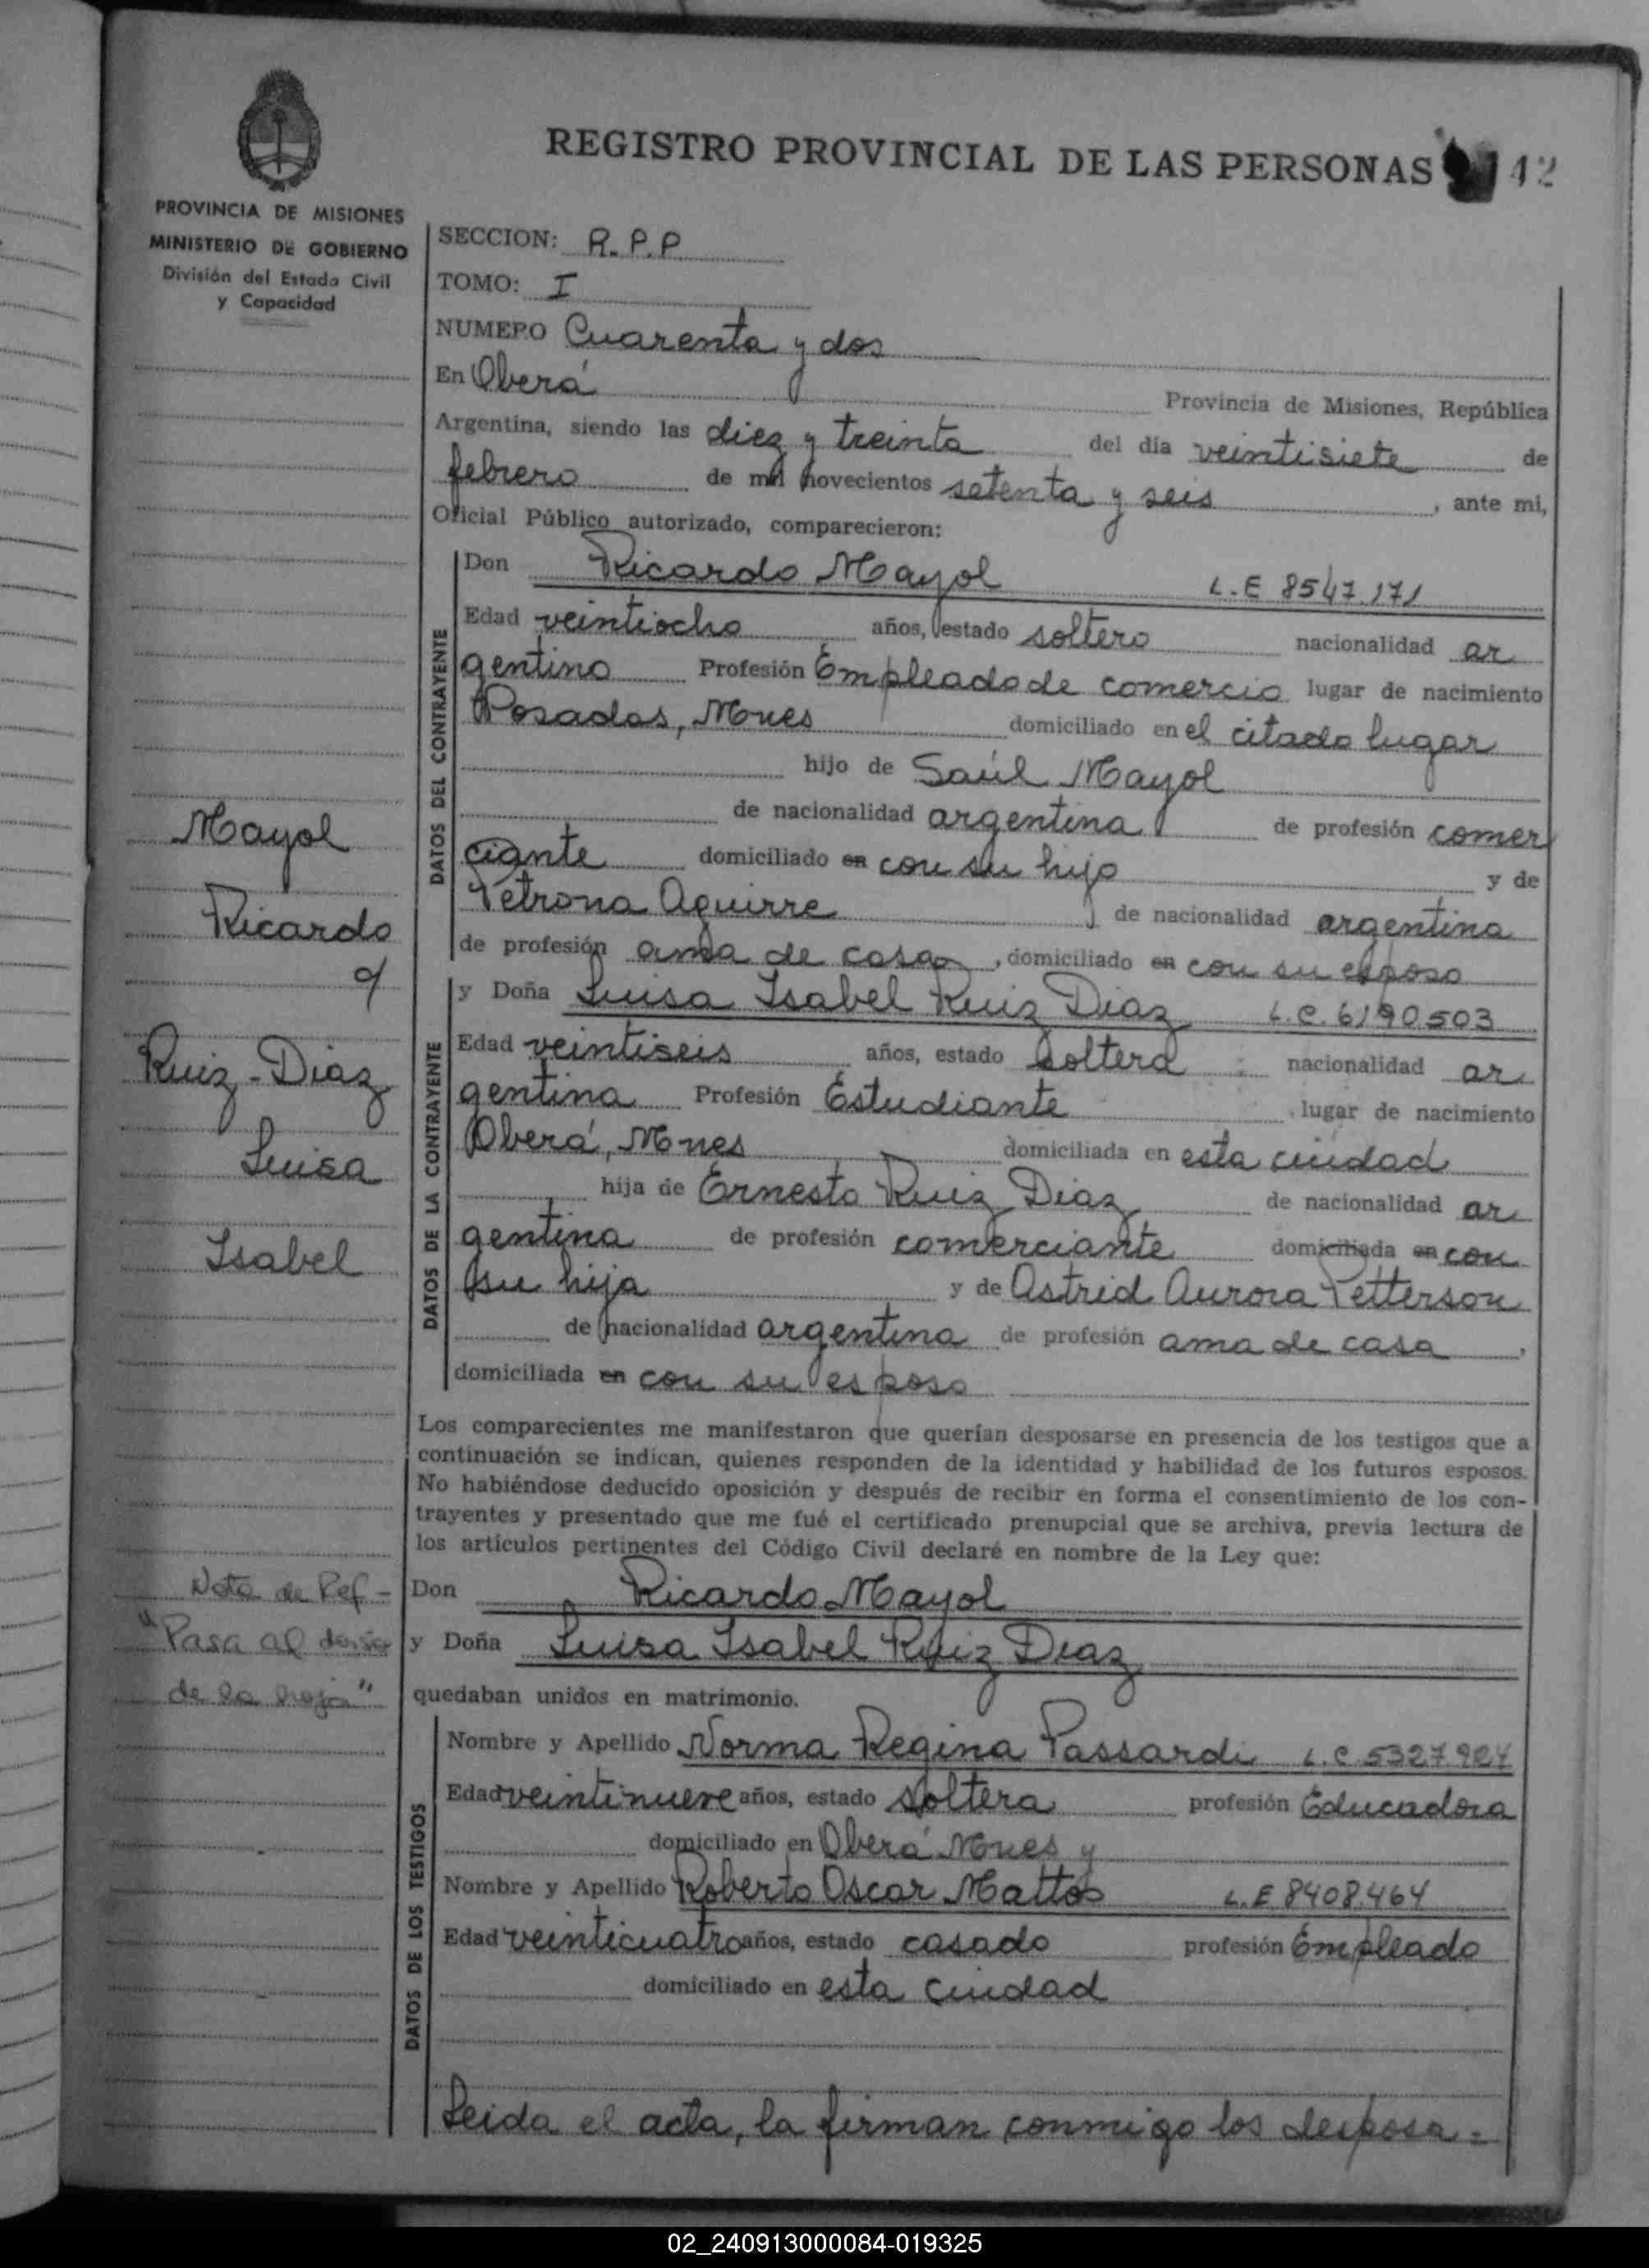 REGISTRO PROVINCIAL DE LAS PERSONAS 42
PROVINCIA DE MISIONES
MINISTERIO DE GOBIERNO
División del Estado Civil
y Capacidad
SECCION: R.P.P
TOMO: I
NUMERO Cuarenta y dos
En Oberá Provincia de Misiones, República
Argentina, siendo las diez y treinta del día veintisiete de
febrero de mil novecientos setenta y seis, ante mi,
Oficial Público autorizado, comparecieron:
DATOS DEL CONTRAYENTE
Don Ricardo Mayol L.E 8547171
Edad veintiocho años, estado soltero nacionalidad ar
gentino Profesión Empleado de comercio lugar de nacimiento
Posadas, Mnes domiciliado en el citado lugar
hijo de Saúl Mayol
de nacionalidad argentina de profesión comer
ciante domiciliado en con su hijo y de
Petrona Aguirre de nacionalidad argentina
de profesión ama de casa, domiciliado en con su esposo
DATOS DE LA CONTRAYENTE
y Doña Luisa Isabel Ruiz Diaz L.C. 6190503
Edad veintiseis años, estado soltera nacionalidad ar
gentina Profesión Estudiante lugar de nacimiento
Oberá, Mnes domiciliada en esta ciudad
hija de Ernesto Ruiz Diaz de nacionalidad ar
gentina de profesión comerciante domiciliada en con
su hija y de Astrid Aurora Petterson
de nacionalidad argentina de profesión ama de casa,
domiciliada en con su esposo
Mayol
Ricardo
c/
Ruiz-Diaz
Luisa
Isabel
Los comparecientes me manifestaron que querían desposarse en presencia de los testigos que a
continuación se indican, quienes responden de la identidad y habilidad de los futuros esposos.
No habiéndose deducido oposición y después de recibir en forma el consentimiento de los con-
trayentes y presentado que me fué el certificado prenupcial que se archiva, previa lectura de
los artículos pertinentes del Código Civil declaré en nombre de la Ley que:
Don Ricardo Mayol
y Doña Luisa Isabel Ruiz Diaz
quedaban unidos en matrimonio.
Nota de Ref-
"Pasa al dorso
de la hoja"
DATOS DE LOS TESTIGOS
Nombre y Apellido Norma Regina Passardi L.C 5327924
Edad veintinueve años, estado soltera profesión Educadora
domiciliado en Oberá Mnes y
Nombre y Apellido Roberto Oscar Mattos L.E 8408.464
Edad veinticuatro años, estado casado profesión Empleado
domiciliado en esta ciudad
Leida el acta, la firman conmigo los desposa=
02_240913000084-019325